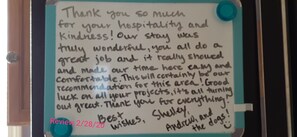 Thank you so much
for your hospitality and
kindness! Our stay was
truly wonderful, you all do a
great job and it really showed
and made our time here easy and
comfortable. This will certainly be our
recommendation for this area! Good
luck on all your projects, it's all turning
out great. Thank you for everything!
Best
wishes, Shelley
Andrew, and
the dogs!
Review 2/28/20